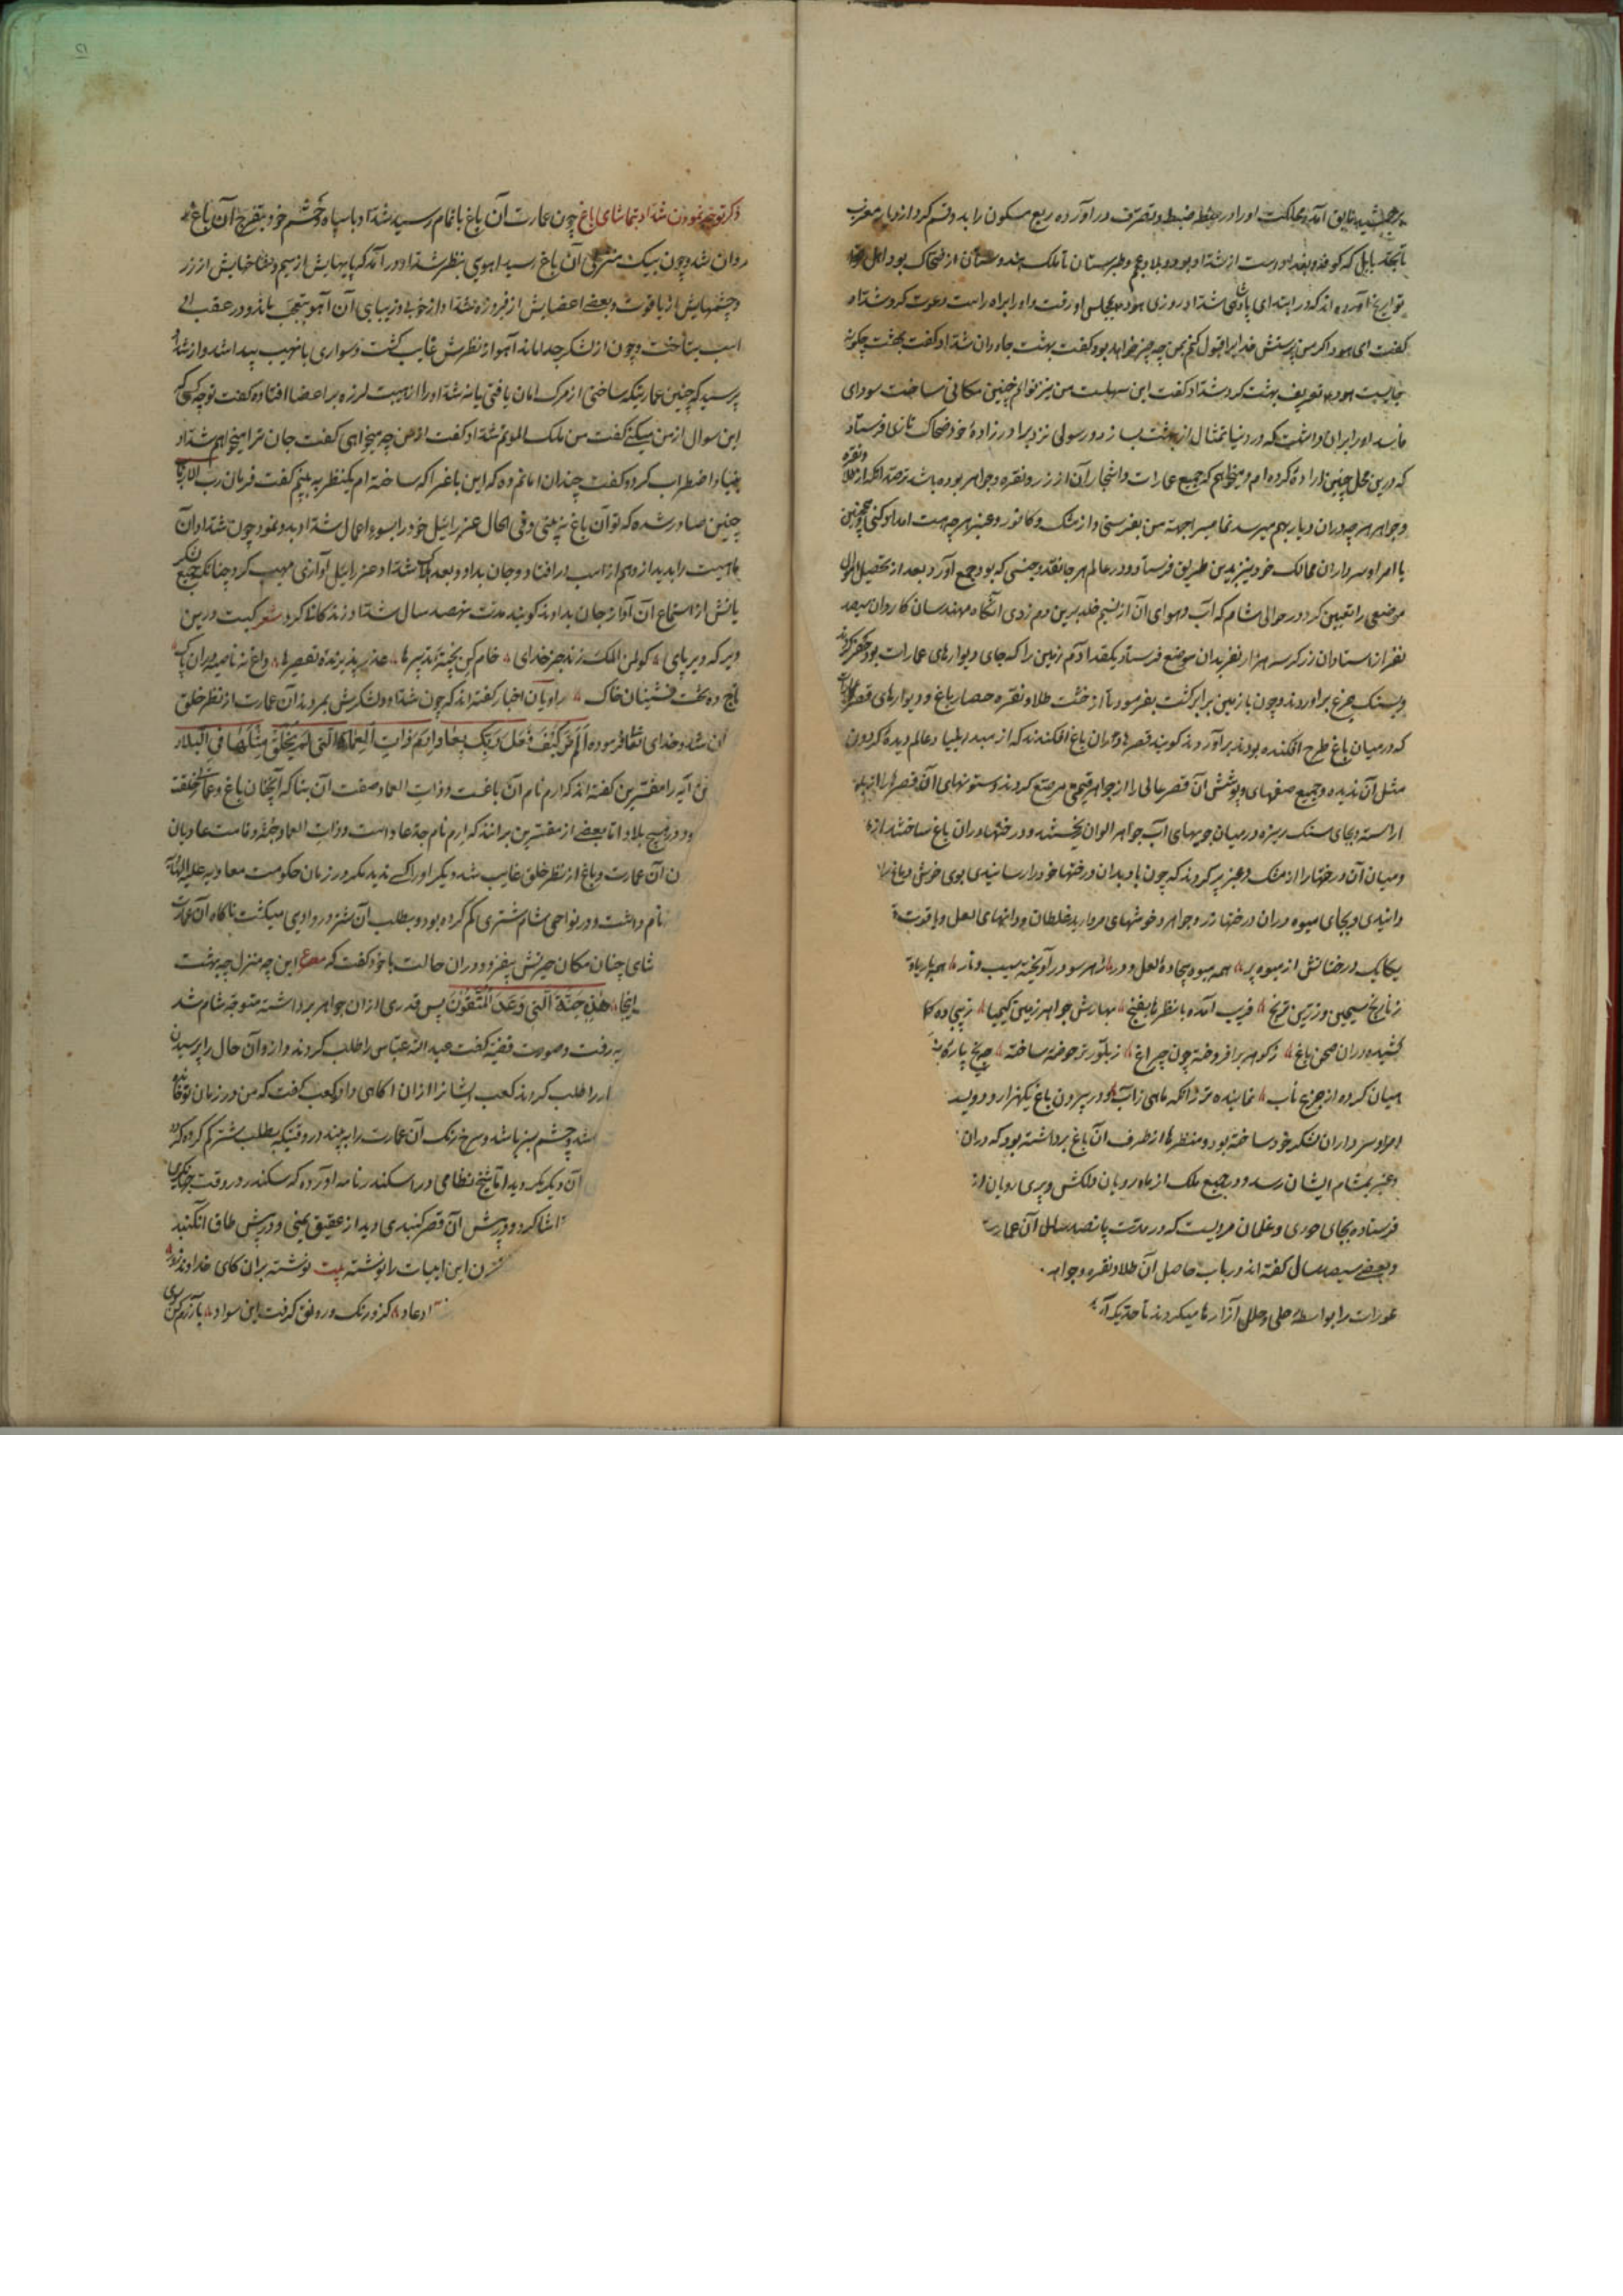 برجمشید فایق آمد و مملکت او را در حیطه ضبط و تصرف در آورده ربع مسکون را بدو قسم کرد از دیار مغرب
تا بحد بابل که کوفه و بغداد است از شداد بود و بلاد عجم و طبرستان تا ملک هندوستان از ضحاک بود و اهل
تواریخ آورده اند که در ابتدای پادشاهی شداد روزی هود بمجلس او رفت و او را براه راست دعوت کرد شداد
گفت ای هود اگر من پرستش خدا را قبول کنم بمن چه چیز خواهد بود گفت بهشت جاودان شداد گفت بهشت چگونه
جاییست هود تعریف بهشت کرد شداد گفت این سهلست من نیز توانم چنین مکانی ساخت سودای
فاسد او را بران داشت که در دنیا تمثال از بهشت بسازد و رسولی نزد برادر زاده خود ضحاک تازی فرستاد
که درین محل چنین اراده کرده ام و میخواهم که جمیع عمارات و اشجار آن از زر و نقره و جواهر بوده باشد ترصد آنکه از طلا و نقره
و جواهر هر چه در ان دیار بهم میرسد تمام بجهة من بفرستی و از مشک و کافور و عنبر هر چه هست امداد کنی و همچنین
با امرا و سرداران ممالک خود نیز بدین طریق فرستاد و در عالم هر جا نقد و جنسی که بود جمع آورد بعد از تحصیل اموال
موضعی را تعیین کرد در حوالی شام که آب و هوای آن از نسیم خلد برین دم زدی آنگاه مهندسان کاردان سیصد
نفر از استادان زرگر سه هزار نفر بدان موضع فرستاد یکقد آدم زمین را که جای دیوارهای عمارات بود حفر کردند
و بسنک جزع بر آوردند و چون با زمین برابر گشت بفرمود تا از خشت طلا و نقره حصار باغ و دیوارهای قصر
که در میان باغ طرح افکنده بودند بر آوردند گویند قصرها در ان باغ افکندند که از مبدا بلیاد عالم دیده گردون
مثل آن ندیده و جمیع صفهای و پوشش آن قصر عالی را از جواهر قیمتی مرصع کردند و ستونهای آن قصر را از
اراسته و بجای سنک ریزه در میان جویهای آب جواهر الوان یختند و درختها در ان باغ ساختند از
و میان آن درختها را از مشک و عنبر پر کردند که چون باد بدان درختها خود را رسانیدی بوی خوش دماغ را
رانیدی و بجای میوه در ان درختها زر و جواهر و خوشهای مروارید غلطان و دانهای لعل و یاقوت
یکایک درختانش از میوه پر همه میوه بیجاده لعل و در ز هر سو در آویخته سیب و نار همه
ز نارنج سیمین و زرین ترنج فریب آمده با نظرها بغنج بهارش جواهر زمین کیمیا ز بیجاده
کشیده در ان صحن باغ ز گوهر بر افروخته چون چراغ ز بلور تر حوضه ساخته
میان کرده از جزع ناب نماینده تر ز انکه ماهی ز آب و در بیرون باغ یکهزار و دویست
امرا و سرداران لشکر خود ساخته بود و منظرها از طرف آن باغ برداشته بود که در ان
و عنبر بمشام ایشان رسد و در جمیع ملک از ماه رویان دلکش و پری رویان از
فرستاده بجای حوری و غلمان مرویست که در مدت پانصد سال آن عمارت
و بعضی سیصد سال گفته اند در باب حاصل آن طلا و نقره و جواهر
عورات را بواسطه حلی و حلل آزارها میکردند تا حدیکه
ذکر توجه نمودن شداد بتماشای باغ چون عمارت آن باغ باتمام رسید شداد با سپاه و حشم خود بتفرج آن باغ
روان شد و چون بیک منزلی آن باغ رسید آهوی بنظر شداد در آمد که پایهایش از سیم و شاخهایش از زر
و چشمهایش از یاقوت و بعضی اعضایش از فیروزه شداد از خوبی و زیبایی آن آهو متعجب بماند و در عقب وی
اسب بتاخت و چون از لشکر جدا ماند آهو از نظرش غایب گشت و سواری با نهیب پیدا شد و از شداد
پرسید که چنین عمارتیکه ساختی از مرک امان یافتی یا نه شداد را از هیبت لرزه بر اعضا افتاده گفت تو چه کسی که
این سوال از من میکنی گفت من ملک الموتم شداد گفت از من چه میخواهی گفت جان ترا میخواهم شداد
بنیاد اضطراب کرده گفت چندان امانم ده که این باغرا که ساخته ام یکنظر به بینم گفت فرمان رب الارباب
چنین صادر شده که تو آن باغ نه بینی و فی الحال عزرائیل خود را بسوء اعمال شداد بدو نمود چون شداد آن
هیبت را بدید از وهم از اسب در افتاد و جان بداد و بعد هلاک شداد عزرائیل آوازی مهیب کرد چنانکه جمیع لشکر
یانش از استماع آن آواز جان بدادند گویند مدت نهصد سال شداد زندگانی کرد شعر کیست درین
دیر که دیر پای کو لمن الملک زند جز خدای خام کن پخته تدبیرها عذر پذیرنده تقصیرها داغ نه ناصیه داران پاک
تاج ده تخت نشینان خاک راویان اخبار گفته اند که چون شداد و لشکرش بمردند آن عمارت از نظر خلق
شد و خدای تعالی فرموده اَلَم تَرَ کَیفَ فَعَلَ رَبُّکَ بِعادٍ اِرَمَ ذاتِ العِمادِ الَّتی لَم یُخلَق مِثلُها فِی البِلادِ
آیه را مفسرین گفته اند که ارم نام آن باغست و ذات العماد صفت آن بنا که آنچنان باغ و عمارتی خلقت
در هیچ بلاد اما بعضی از مفسرین برانند که ارم نام جد عاد است و ذات العماد جثه و قامت عادیان
ن آن عمارت و باغ از نظر خلق غایب شد دیگر او را کسی ندید مگر در زمان حکومت معاویه علیه
نام داشت و در نواحی شام شتری گم کرده بود و بطلب آن شتر در وادی میگشت ناگاه آن عمارت
شای چنان مکان حیرتش بیفزود و در ان حالت با خود گفت که مصرع این چه منزل چه بهشت
اینجا هٰذِهِ جَنَّةُ الَّتی وُعِدَ المُتَّقُون پس قدری از ان جواهر برداشته متوجه شام شد
یه رفت و صورت قضیه گفت عبد الله عباس را طلب کردند و از و آن حال را پرسیدن
را طلب کردند کعب ایشانرا از ان اگاهی داد کعب گفت که من در زمان
شد و چشم سبز باشد و سرخ رنک آن عمارت را به بیند در وقتیکه بطلب شتر گم کرده
آن دیگر نکردید اما شیخ نظامی در اسکندر نامه آورده که سکندر در وقت
تماشا کرد و درش آن قصر گنبدی دید از عقیق یمنی و درش طاق
ن این ابیات را نوشته بیت نوشته بران کای خداوند زور
ادعاد کز و رنک و رونق گرفت این سواد بازرم کن